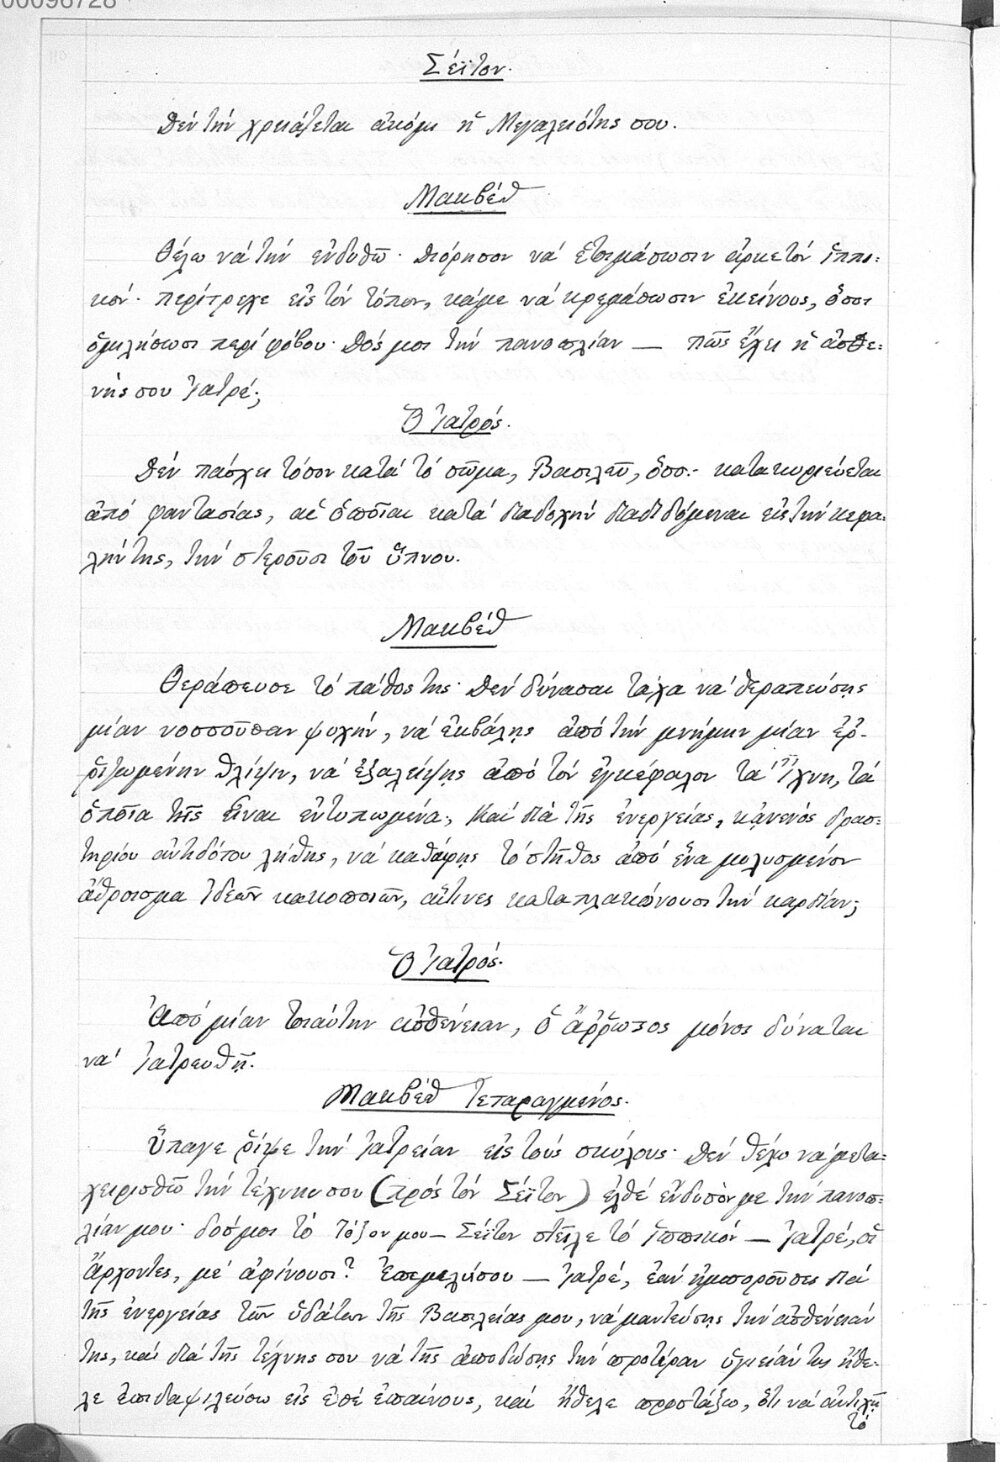 00096728
Σέϊτον.
Δέν τήν χρειάζεται ἀκόμη ἡ Μεγαλειότης σου.
Μακβέθ
Θέλω νά τήν ἐνδυθῶ· Διόρησον νά ἑτοιμάσωσιν ἀρκετόν ἱππι-
κόν· περίτρεχε εἰς τόν τόπον, κάμε νά κρεμάσωσιν ἐκείνους, ὅσοι
ὁμιλήσωσι περί φόβου· Δός μοι τήν πανοπλίαν — πῶς ἔχει ἡ ἀσθε-
νής σου Ἰατρέ;
Ὁ Ἰατρός.
Δέν πάσχει τόσον κατά τό σῶμα, Βασιλεῦ, ὅσον κατακυριεύεται
ἀπό φαντασίας, αἱ ὁποῖαι κατά διαδοχήν διαδιδόμεναι εἰς τήν κεφα-
λήν της, τήν στεροῦσι τοῦ ὕπνου.
Μακβέθ
Θεράπευσε τό πάθος της· Δέν δύνασαι τάχα νά θεραπεύσῃς
μίαν νοσσοῦσαν ψυχήν, νά ἐκβάλῃς ἀπό τήν μνήμην μίαν ἐρ-
ριζωμένην θλίψιν, νά ἐξαλείψῃς ἀπό τόν ἐγκέφαλον τά ἴχνη, τά
ὁποῖα τῆς εἶναι ἐντυπωμένα, καί διά τῆς ἐνεργείας, κᾀνενός δρασ-
τηρίου ἀντιδότου λήθης, νά καθάρῃς τό στῆθος ἀπό ἕνα μολυσμένον
ἄθροισμα ἰδεῶν κακοποιῶν, αἵτινες καταπλακόνουσι τήν καρδίαν;
Ὁ Ἰατρός.
Ἀπό μίαν τοιαύτην ἀσθένειαν, ὁ ἄῤῥωστος μόνος δύναται
νά ἰατρευθῇ.
Μακβέθ Τεταραγμένος.
Ὕπαγε ῥίψε τήν ἰατρείαν εἰς τούς σκύλους· Δέν θέλω νά μετα-
χειρισθῶ τήν τέχνην σου (πρός τόν Σέϊτον) ἐλθέ ἔνδυσόν με τήν πανοπ-
λίαν μου· δόσμοι τό τόξον μου — Σέϊτον στεῖλε τό ἱππικόν — Ἰατρέ, οἱ
Ἄρχοντες, μέ ἀφίνουσι? ἐπιμελήσου — Ἰατρέ, ἐάν ἠμποροῦσες διά
τῆς ἐνεργείας τῶν ὑδάτων τῆς Βασιλείας μου, νά μαντεύσῃς τήν ἀσθένειάν
της, καί διά τῆς τέχνης σου νά τῆς ἀποδώσῃς τήν προτέραν ὑγιείαν της ἤθε-
λε ἐπιδαψιλεύσω εἰς ἐσέ ἐπαίνους, καί ἤθελε προστάξω, ὅτι νά ἀντιχῇ
τό